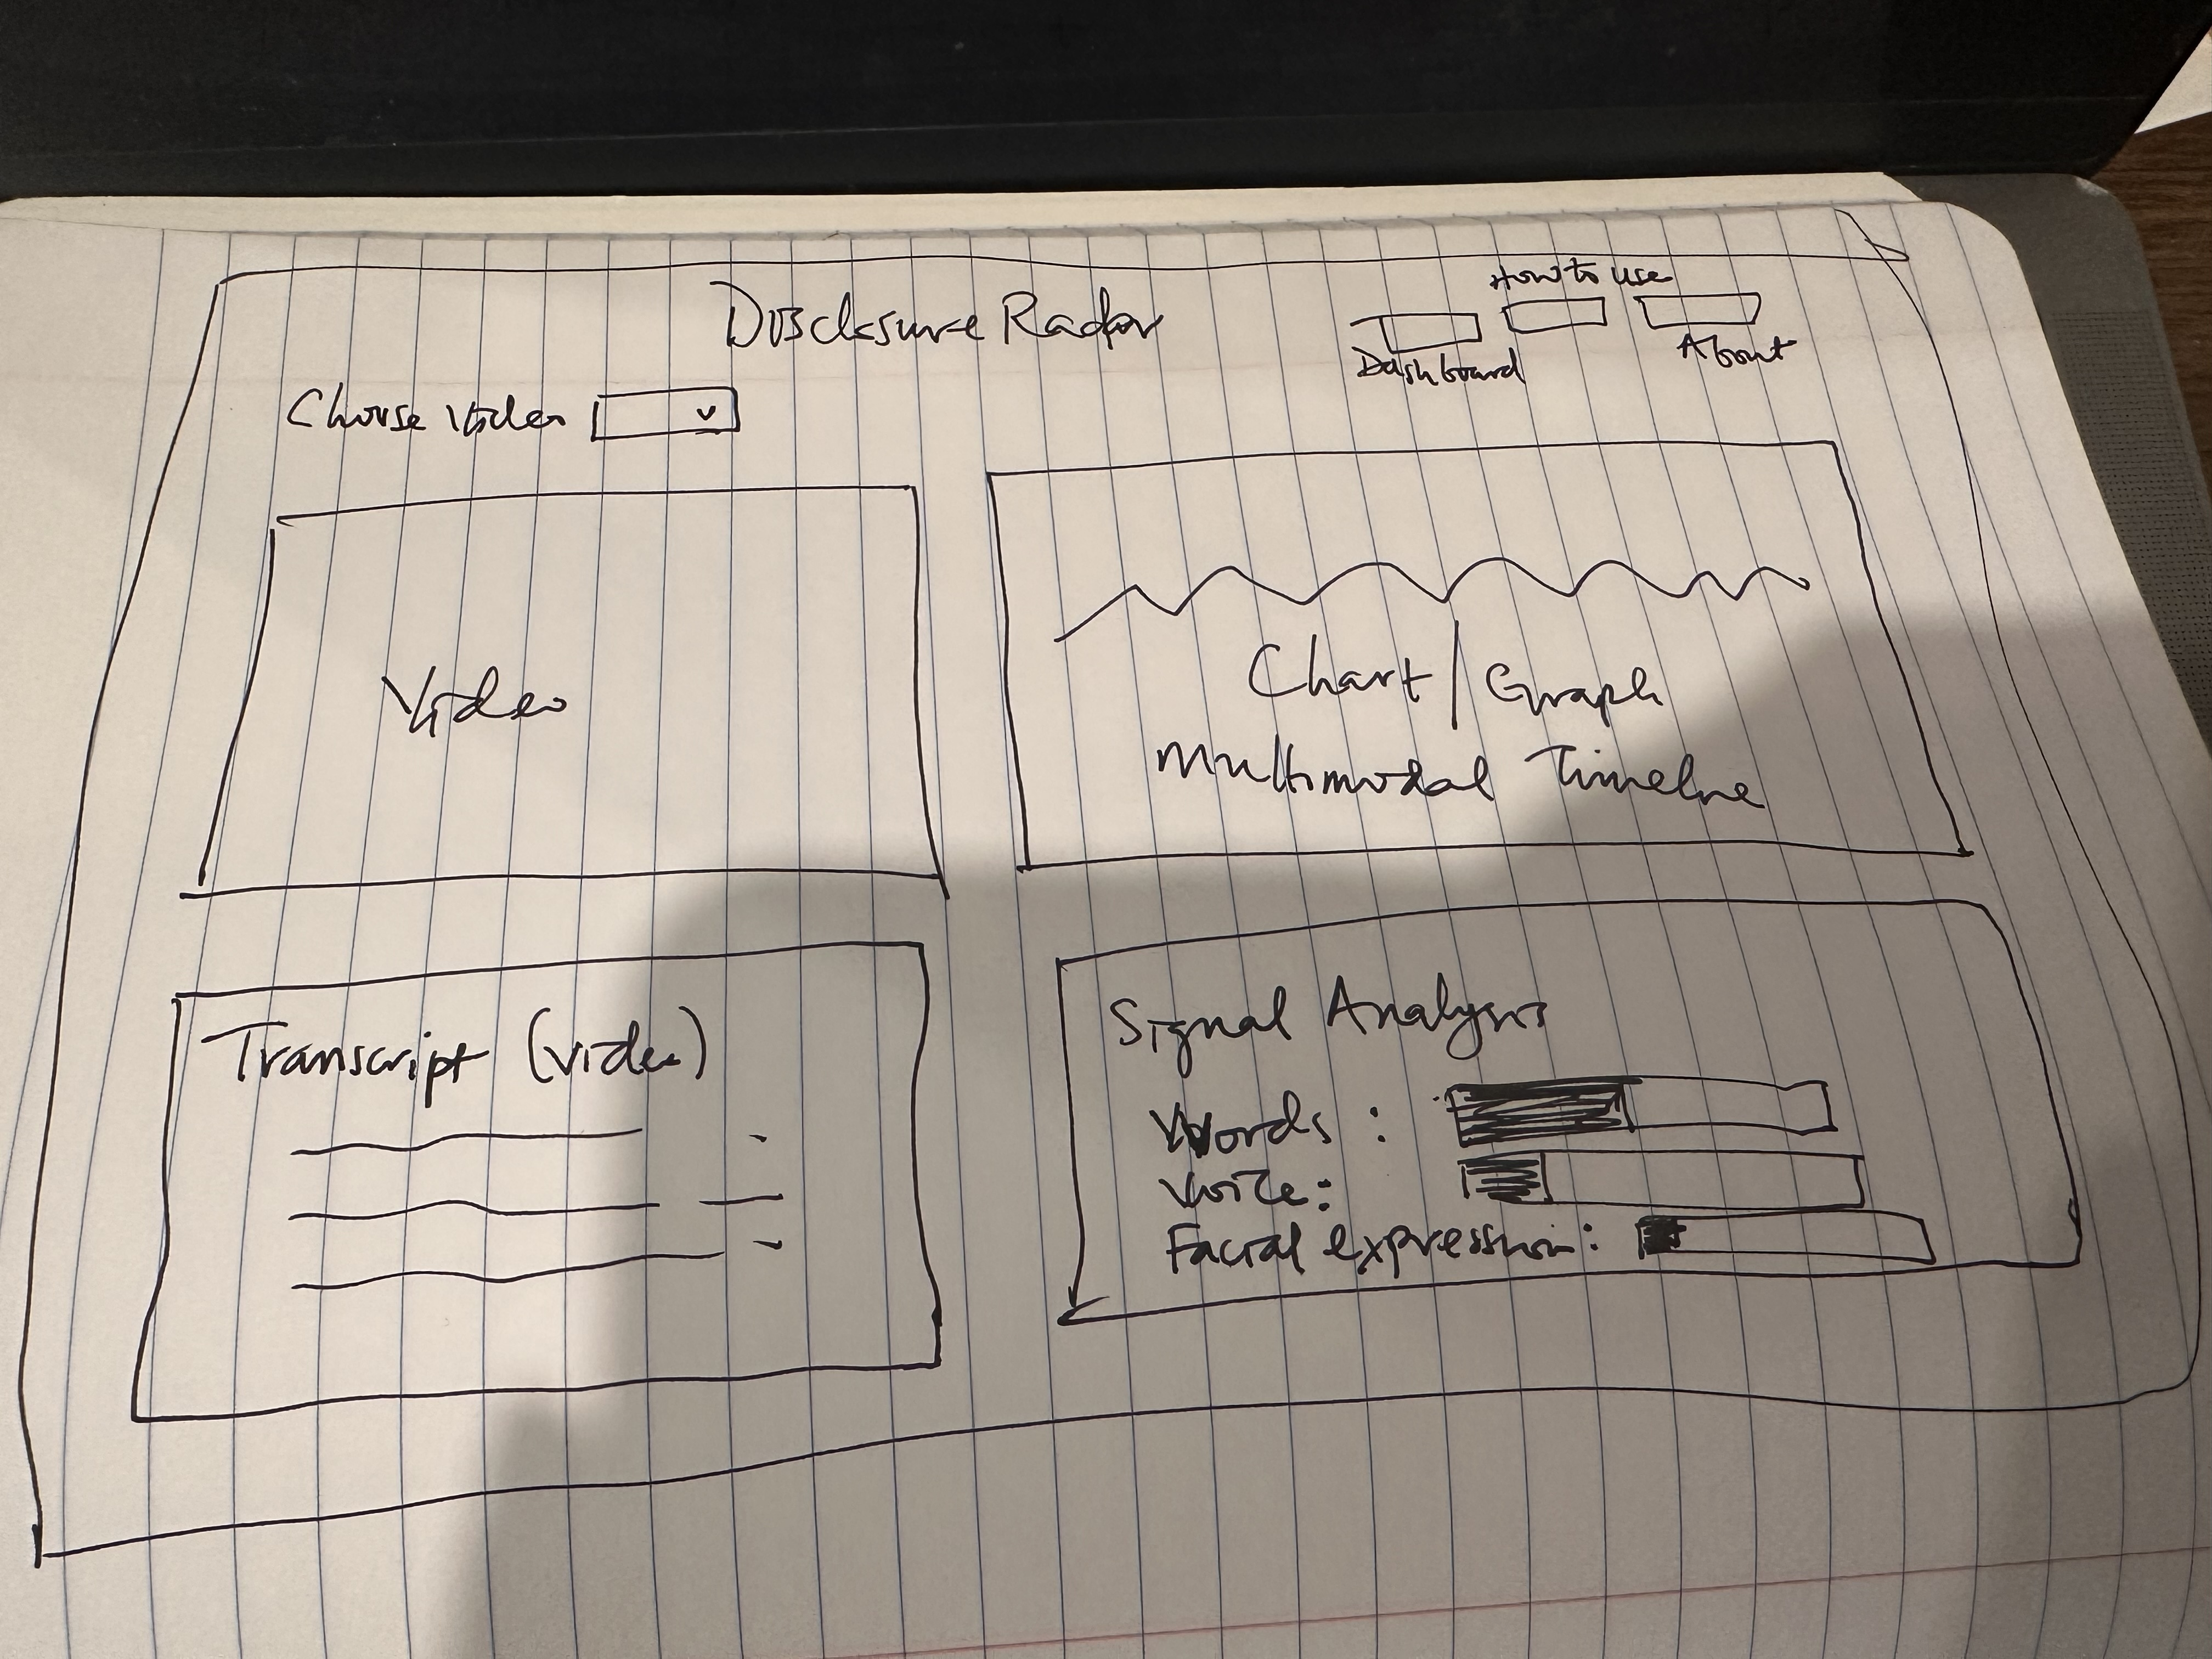 Disclosure Radar
How to use
Dashboard
About
Choose Video
Video
Chart / Graph
Multimodal Timeline
Transcript (video)
Signal Analysis
Words :
Voice :
Facial expression :